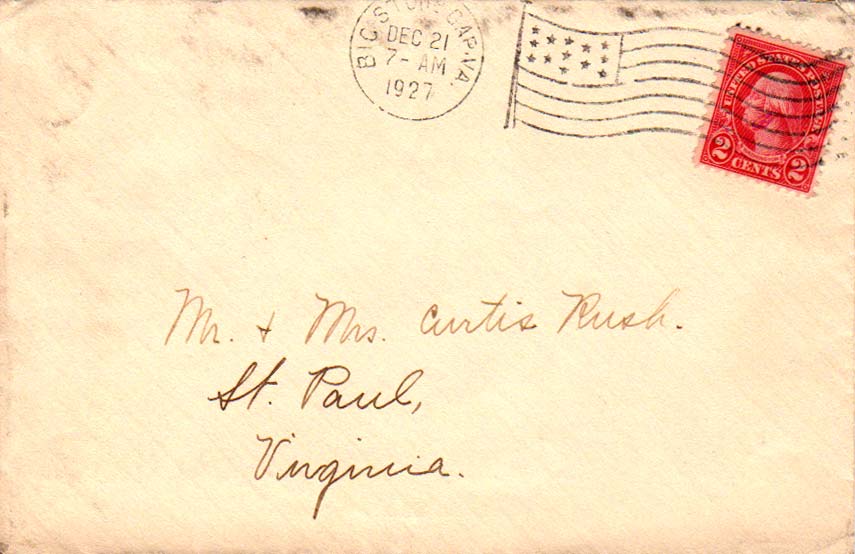 BIG STONE GAP, VA.
DEC 21
7 - AM
1927
UNITED STATES POSTAGE
2 CENTS 2
Mr. + Mrs. Curtis Rush.
St. Paul,
Virginia.